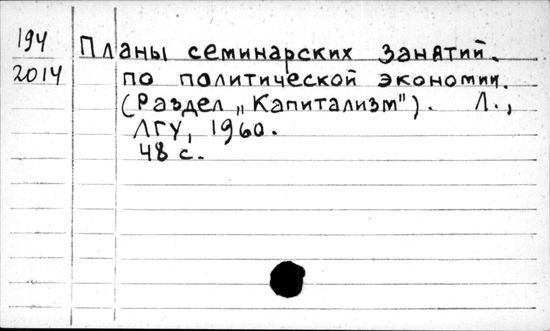 194
2014
Планы семинарских занятий.
по политической экономии.
(Раздел „Капитализм"). Л.,
ЛГУ, 1960.
48 с.